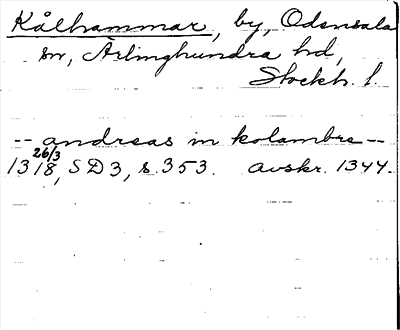 Kålhammar, by, Odensala
sn, Ärlinghundra hd,
Stockh. l.
-- andreas in kolambre --
26/3
1318, SD3, s. 353. avskr. 1344.